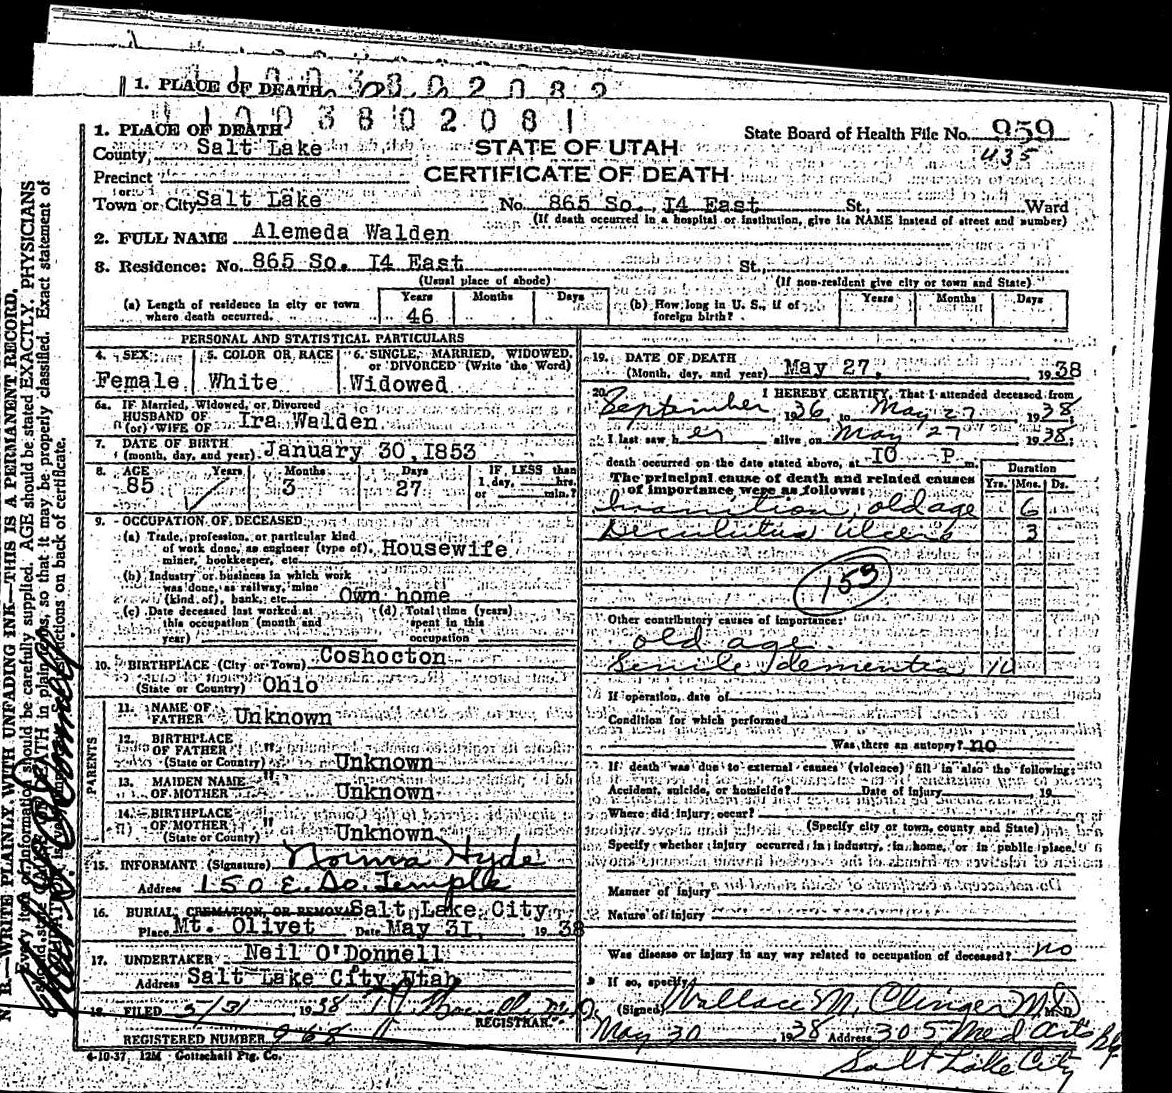 1. PLACE OF DEATH
1 1 0 0 3 8 0 2 0 8 2
1 1 0 0 3 8 0 2 0 8 1
1. PLACE OF DEATH
State Board of Health File No. 959
435
County, Salt Lake
STATE OF UTAH
Precinct
CERTIFICATE OF DEATH
or
Town or City Salt Lake No. 865 So. I4 East St., Ward
(If death occurred in a hospital or institution, give its NAME instead of street and number)
2. FULL NAME Alemeda Walden
3. Residence: No. 865 So. I4 East St.,
(Usual place of abode) (If non-resident give city or town and State)
(a) Length of residence in city or town where death occurred. Years 46 Months Days
(b) How long in U. S., if of foreign birth? Years Months Days
PERSONAL AND STATISTICAL PARTICULARS
4. SEX Female
5. COLOR OR RACE White
6. SINGLE, MARRIED, WIDOWED, or DIVORCED (Write the Word) Widowed
6a. IF Married, Widowed, or Divorced
HUSBAND OF
(or) WIFE OF Ira Walden
7. DATE OF BIRTH
(month, day, and year) January 30, I853
8. AGE Years 85 Months 3 Days 27
IF LESS than 1 day, hrs. or min.?
9. OCCUPATION OF DECEASED
(a) Trade, profession, or particular kind
of work done, as engineer (type of), Housewife
miner, bookkeeper, etc.
(b) Industry or business in which work
was done, as railway, mine
(kind of), bank, etc. Own home
(c) Date deceased last worked at this occupation (month and year)
(d) Total time (years) spent in this occupation
10. BIRTHPLACE (City or Town) Coshocton
(State or Country) Ohio
PARENTS
11. NAME OF FATHER Unknown
12. BIRTHPLACE OF FATHER "
(State or Country) Unknown
13. MAIDEN NAME OF MOTHER " Unknown
14. BIRTHPLACE OF MOTHER "
(State or County) Unknown
15. INFORMANT (Signature) Norma Hyde
Address 150 E. So. Temple
16. BURIAL, CREMATION, OR REMOVAL Salt Lake City
Place Mt. Olivet Date May 31, 1938
17. UNDERTAKER Neil O'Donnell
Address Salt Lake City, Utah
18. FILED 5/31 1938
REGISTRAR.
REGISTERED NUMBER 968
4-10-37. 12M Gottschall Ptg. Co.
19. DATE OF DEATH
(Month, day, and year) May 27, 1938
20. I HEREBY CERTIFY, That I attended deceased from
September 1936 to May 27 1938
I last saw her alive on May 27 1938;
death occurred on the date stated above, at IO P m.
The principal cause of death and related causes
of importance were as follows:
Duration
Yrs. Mos. Ds.
Inanition, old age 6
Decubitus ulcers 3
159
Other contributory causes of importance:
old age
Senile dementia 10
If operation, date of
Condition for which performed
Was there an autopsy? no
If death was due to external causes (violence) fill in also the following:
Accident, suicide, or homicide? Date of injury 19
Where did injury occur?
(Specify city or town, county and State)
Specify whether injury occurred in industry, in home, or in public place.
Manner of injury
Nature of injury
Was disease or injury in any way related to occupation of deceased? no
If so, specify
(Signed) Wallace M. Clinger M.D. M.D.
May 30 1938 Address 305 Med Arts Bg.
Salt Lake City
N. B.—WRITE PLAINLY, WITH UNFADING INK—THIS IS A PERMANENT RECORD.
Every item of information should be carefully supplied. AGE should be stated EXACTLY. PHYSICIANS
should state CAUSE OF DEATH in plain terms, so that it may be properly classified. Exact statement of
OCCUPATION is very important. See instructions on back of certificate.